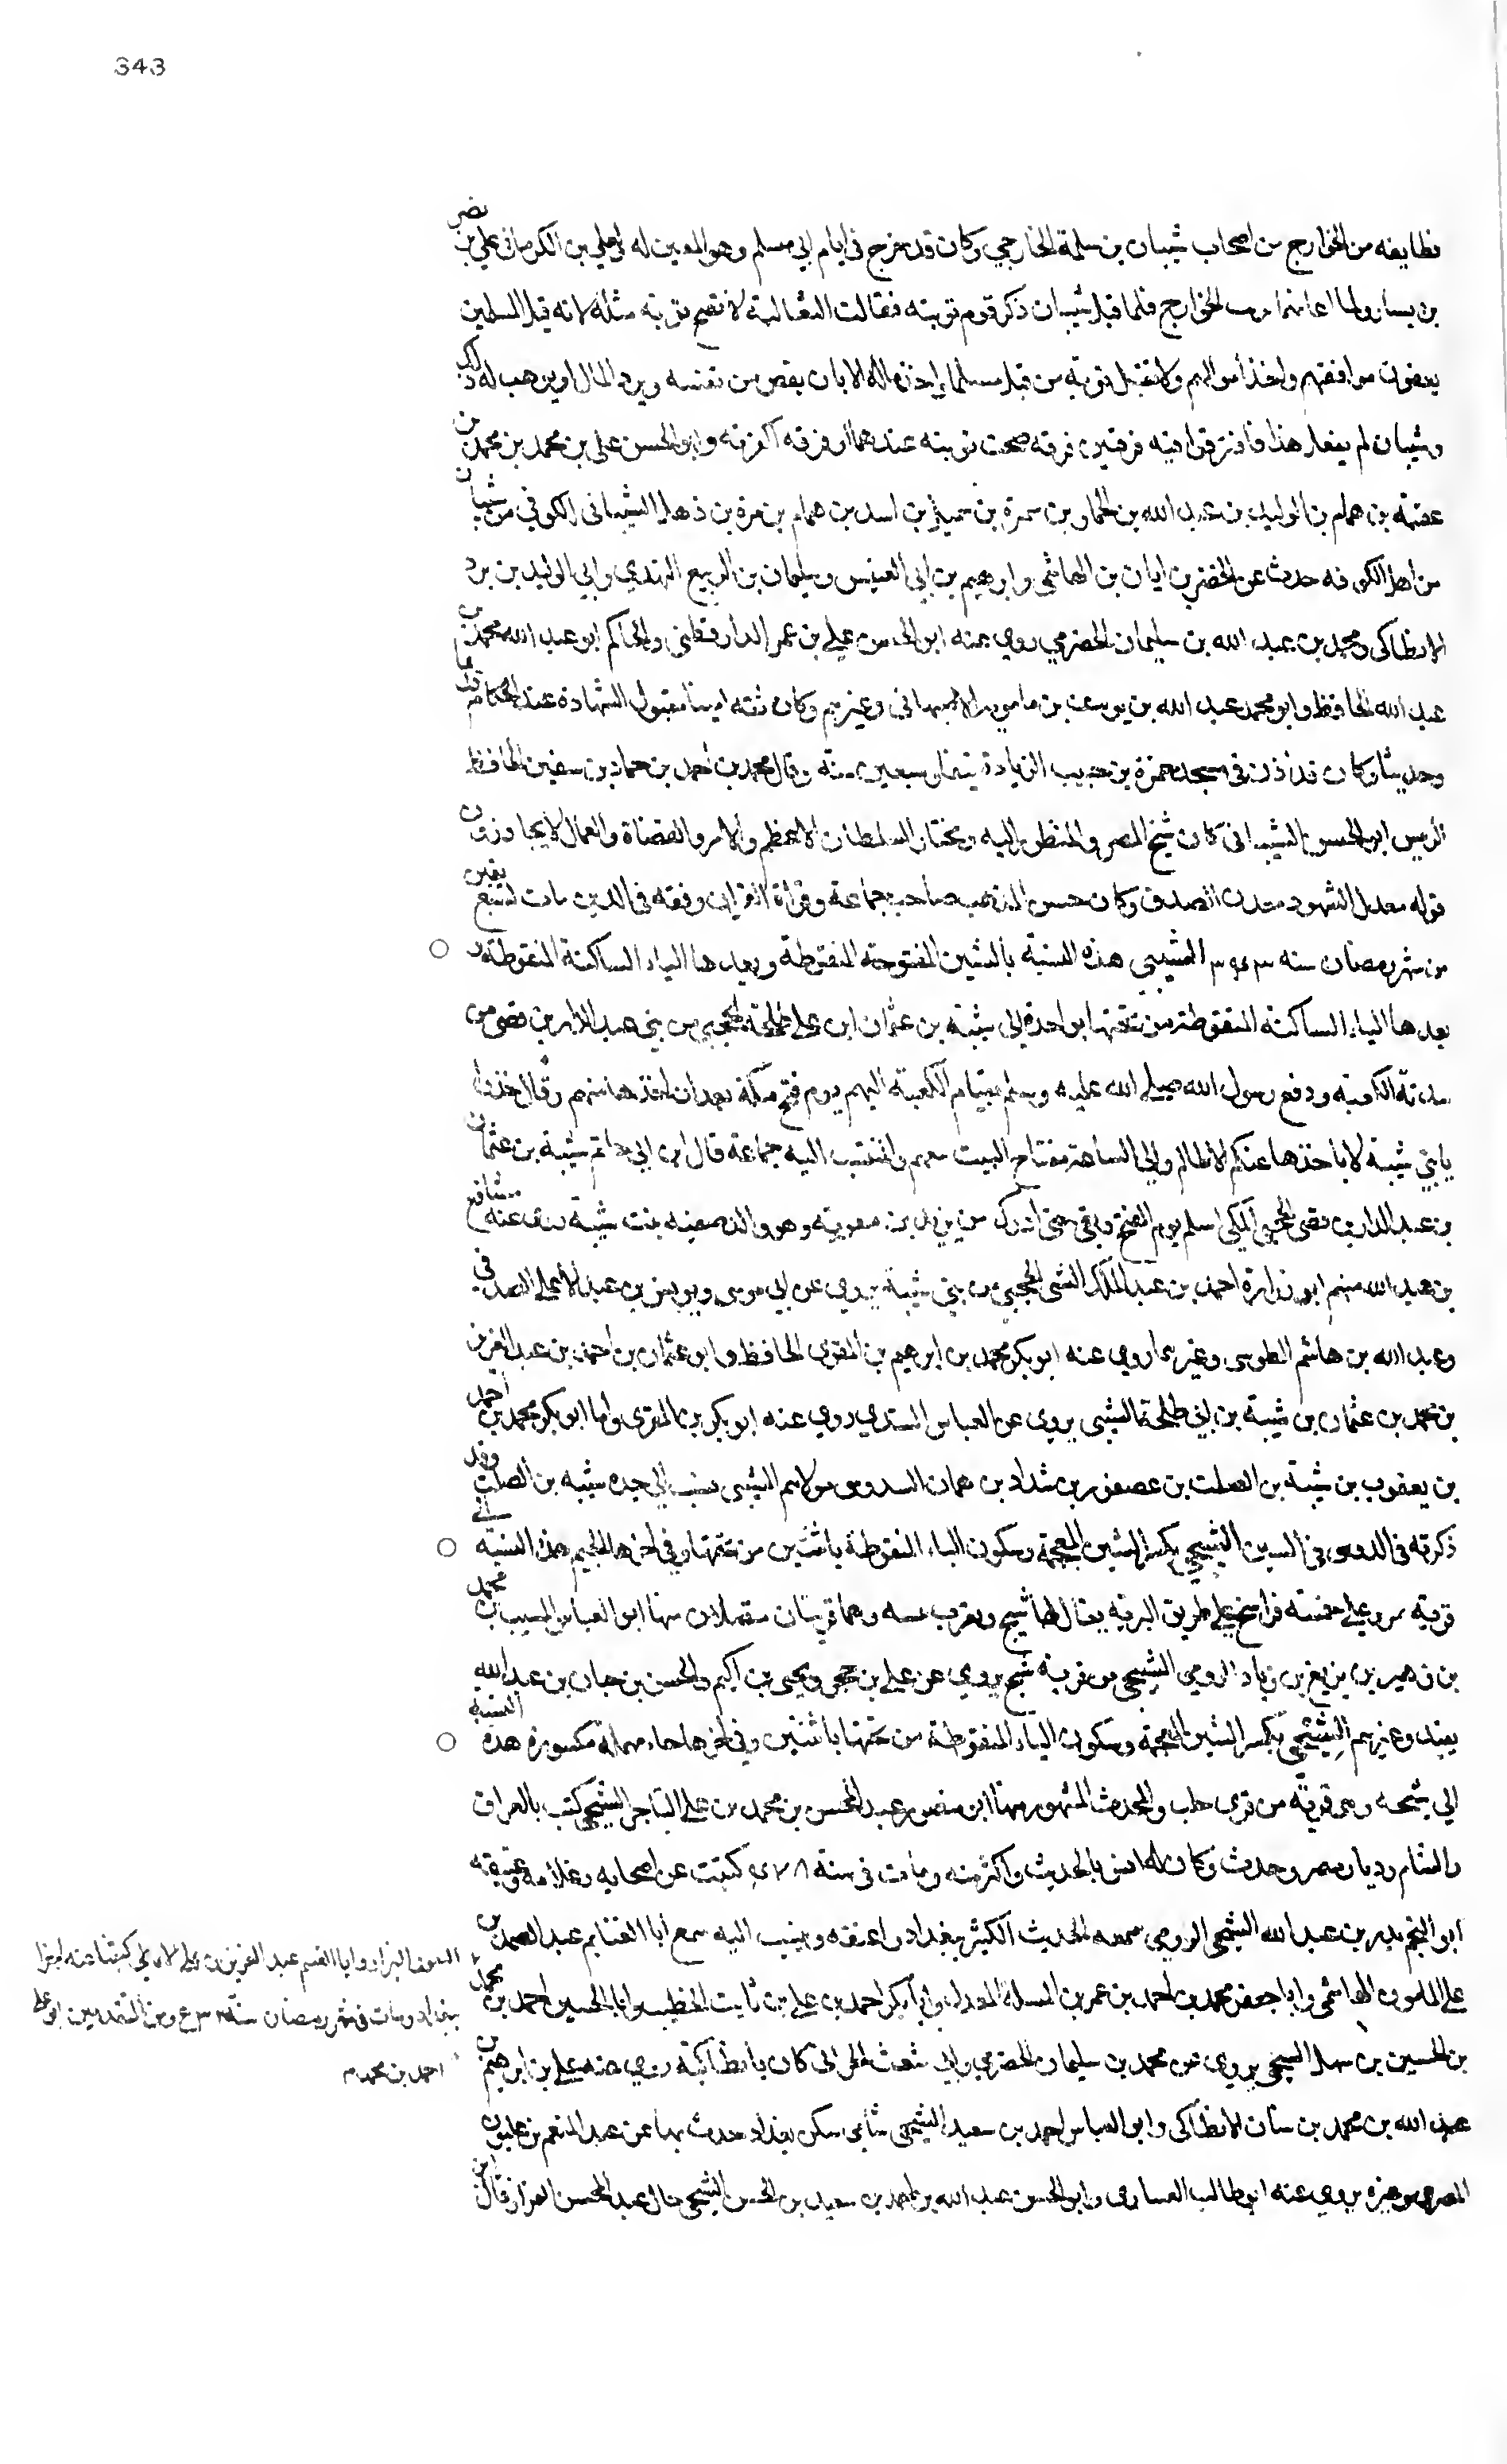 343
فطايفه من الخوارج من اصحاب شيبان بن سلمة الخارجي وكان قد خرج في ايام ابي مسلم وهو المعين له ولعلي بن الكرماني علي نصر
بن سيار ولما اعانهما الخوارج فلما قتل شيبان ذكر قوم توبته فقالت الثعالبة لا تصح توبة مثله لانه قتل المسلمين
موافقهم واخذ اموالهم ولا تقبل توبة من قتل مسلما واخذ ماله الا بان يقص من نفسه ويرد المال او يوهب له ذلك
وشيبان لم يفعل هذا فافترقوا فيه فرقتين فرقه صحت توبته عندها وفرقه اكفرته وابو الحسن علي بن محمد بن محمد بن
عقبة بن همام بن الوليد بن عبد الله بن الحمار بن سمرة بن اسد بن همام بن مرة بن ذهل الشيباني الكوفي من شيبان
من اهل الكوفه حدث عن الخضر بن ابان بن الهاشمي وابرهيم بن ابي العنبس وسليمان بن الربيع النهدي وابي الوليد بن برد
الانطاكي ومحمد بن عبد الله بن سليمان الحضرمي روى عنه ابو الحسن علي بن عمر الدارقطني والحاكم ابو عبد الله محمد بن
عبد الله الحافظ وابو محمد عبد الله بن يوسف بن مامويه الاصبهاني وغيرهم وكان ثقه امينا مقبول الشهادة عند الحكام قديما
وحديثا وكان قد اذن في مسجد حمزة بن حبيب الزيادة نيفا وسبعين سنة وقال محمد بن احمد بن حماد بن سفين الحافظ
الرييس ابو الحسن الشيباني كان شيخ المصر والمنظور اليه ومختار السلطان الاعظم والامر والقضاة والعمال لا يجاوزون
قوله معدل الشهود معدن الصدق وكان حسن المذهب صاحب جماعة وقراة القران وفقه في الدين مات لسبع بقين
من شهر رمضان سنه ٣٤٣ الشيبي هذه النسبة بالشين المفتوحة المنقوطة وبعدها الياء الساكنة المنقوطة
بعدها الياء الساكنة المنقوطة من تحتها بواحدة الى شيبة بن عثمان ابن طلحة الحجبي من بني عبد الدار بن قصي من
سدنة الكعبة ودفع رسول الله صلى الله عليه وسلم مفتاح الكعبة اليهم يوم فتح مكة بعد ان اخذها منهم وقال خذوها
يا بني شيبة لا ياخذها عنكم الا ظالم والي الساعة مفتاح البيت معهم وانتسب اليه جماعة قال ابن ابي حاتم شيبة بن عثمان
بن عبد الدار بن قصي الحجبي المكي اسلم يوم الفتح وبقى حتى ادرك يزيد بن معوية وهو والد صفيه بنت شيبة روى عنه مسافع
بن عبد الله منهم ابو زرارة احمد بن عبد الملك الشيبي الحجبي من بني شيبة يروي عن ابي موسى ويونس بن عبد الاعلى الصدفي
وعبد الله بن هاشم الطوسي وغيرهما روى عنه ابو بكر محمد بن ابرهيم بن المقرى الحافظ وابو عثمان بن احمد بن عبد العزيز
بن محمد بن عثمان بن شيبة بن ابي طلحة الشيبي يروي عن العباس روى عنه ابو بكر بن المقرى واما ابو بكر محمد بن احمد
بن يعقوب بن شيبة بن الصلت بن عصفور بن شداد بن هميان السدوسي مولاهم الشيبي نسب الى جده شيبه بن الصلت وقد
ذكرته في السدوسي في السين الشيجي بكسر الشين المعجمة وسكون الياء المنقوطة باثنتين من تحتها وفي اخرها الجيم هذه النسبة الى
قرية بمرو على خمسة فراسخ على طريق البرية يقال لها شيج وهما قريتان متصلان منها ابو العباس المسيب بن محمد
بن زهير بن يزيع بن زياد الرومي الشيجي من قرية شيج يروي عن علي بن حجر ويحيى بن اكثم والحسن بن حبان بن عبد الله
وغيرهم الشيحي بكسر الشين المعجمة وسكون الياء المنقوطة من تحتها باثنتين وفي اخرها حاء مهملة مكسورة هذه النسبة
الى شيحه وهي قرية من قرى حلب والمحدث المشهور منها ابن منصور عبد المحسن بن محمد بن علي التاجر الشيحي كتب بالعراق
والشام وديار مصر وحدث وكان له انس بالحديث واكثر منه ومات في سنة كتبت عن اصحابه وغلامه وعتيقه
ابو النجم بدر بن عبد الله الشيحي الرومي سمعه الحديث الكثير ببغداد واعتقه وينسب اليه سمع ابا الغنايم عبد الصمد بن
علي المامون الهاشمي وابا جعفر محمد بن احمد بن عمر بن المسلمة المعدل وابا بكر احمد بن علي بن ثابت الخطيب وابا الحسين احمد بن محمد
النقور البزار وابا القسم عبد العزيز بن علي كتبنا عنه اجزا
ببغداد ومات في شهر رمضان سنة ومن القدماء ابو علي
احمد بن محمد
بن الحسين بن سهل الشيحي يروي عن محمد بن سليمان الحضرمي وابي شعيب الحراني كان بانطاكية روى عنه علي بن ابرهيم بن
عبد الله بن محمد بن سنان الانطاكي وابو العباس احمد بن سعيد الشيحي شامي سكن بغداد حدث بها عن عبد المنعم بن غلبون
المصري وغيره يروي عنه ابو طالب العشاري وابو الحسن عبد الله بن احمد بن سعيد بن الحسن الشيحي خال عبد المحسن القزاز قال ابن